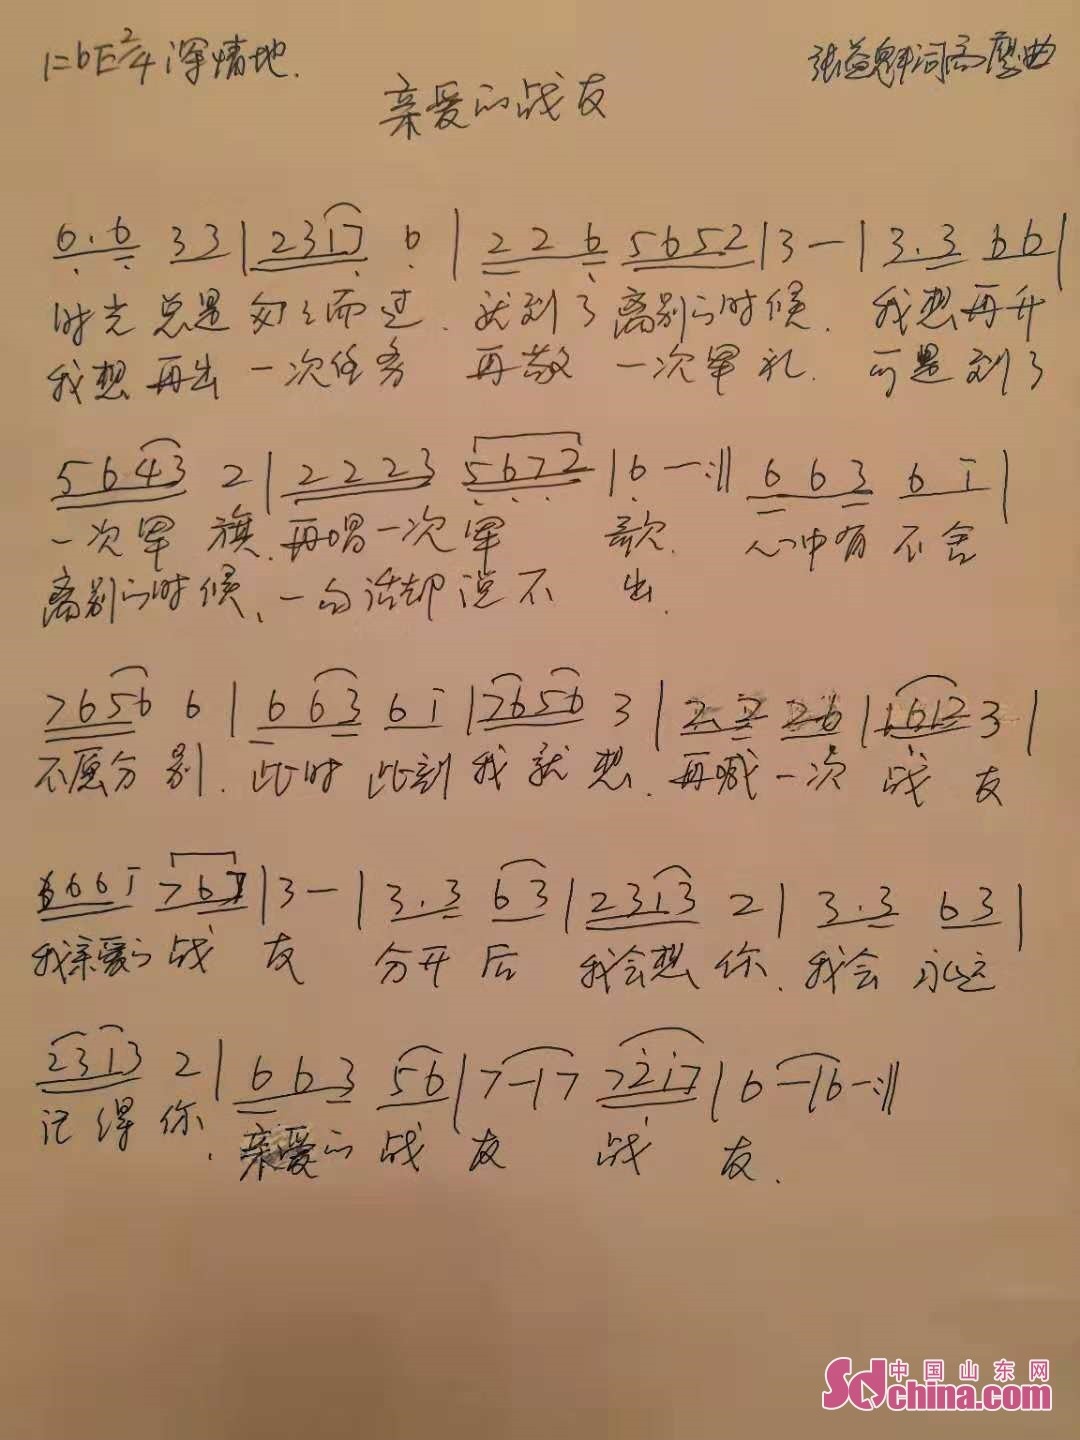 1=bE 2/4 深情地.
张益 词 高 曲
亲爱的战友
6.6 33|2317 6|226 5652|3—|3.3 66|
时光总是匆匆而过.就到了离别的时候.我想再升
我想再出一次任务 再敬一次军礼.可是到了
5643 2|2223 5672|6—:‖663 6i|
一次军旗.再唱一次军歌.心中有不舍
离别的时候、一句话却说不出.
7656 6|663 6i|7656 3|2.2 26|1612 3|
不愿分别.此时此刻我就想.再喊一次战友
666i 767|3—|3.3 63|2313 2|3.3 63|
我亲爱的战友 分开后 我会想你.我会永远
2313 2|663 56|7—|7 72i7|6—|6—:‖
记得你.亲爱的战友 战友.
中国山东网
Sdchina.com